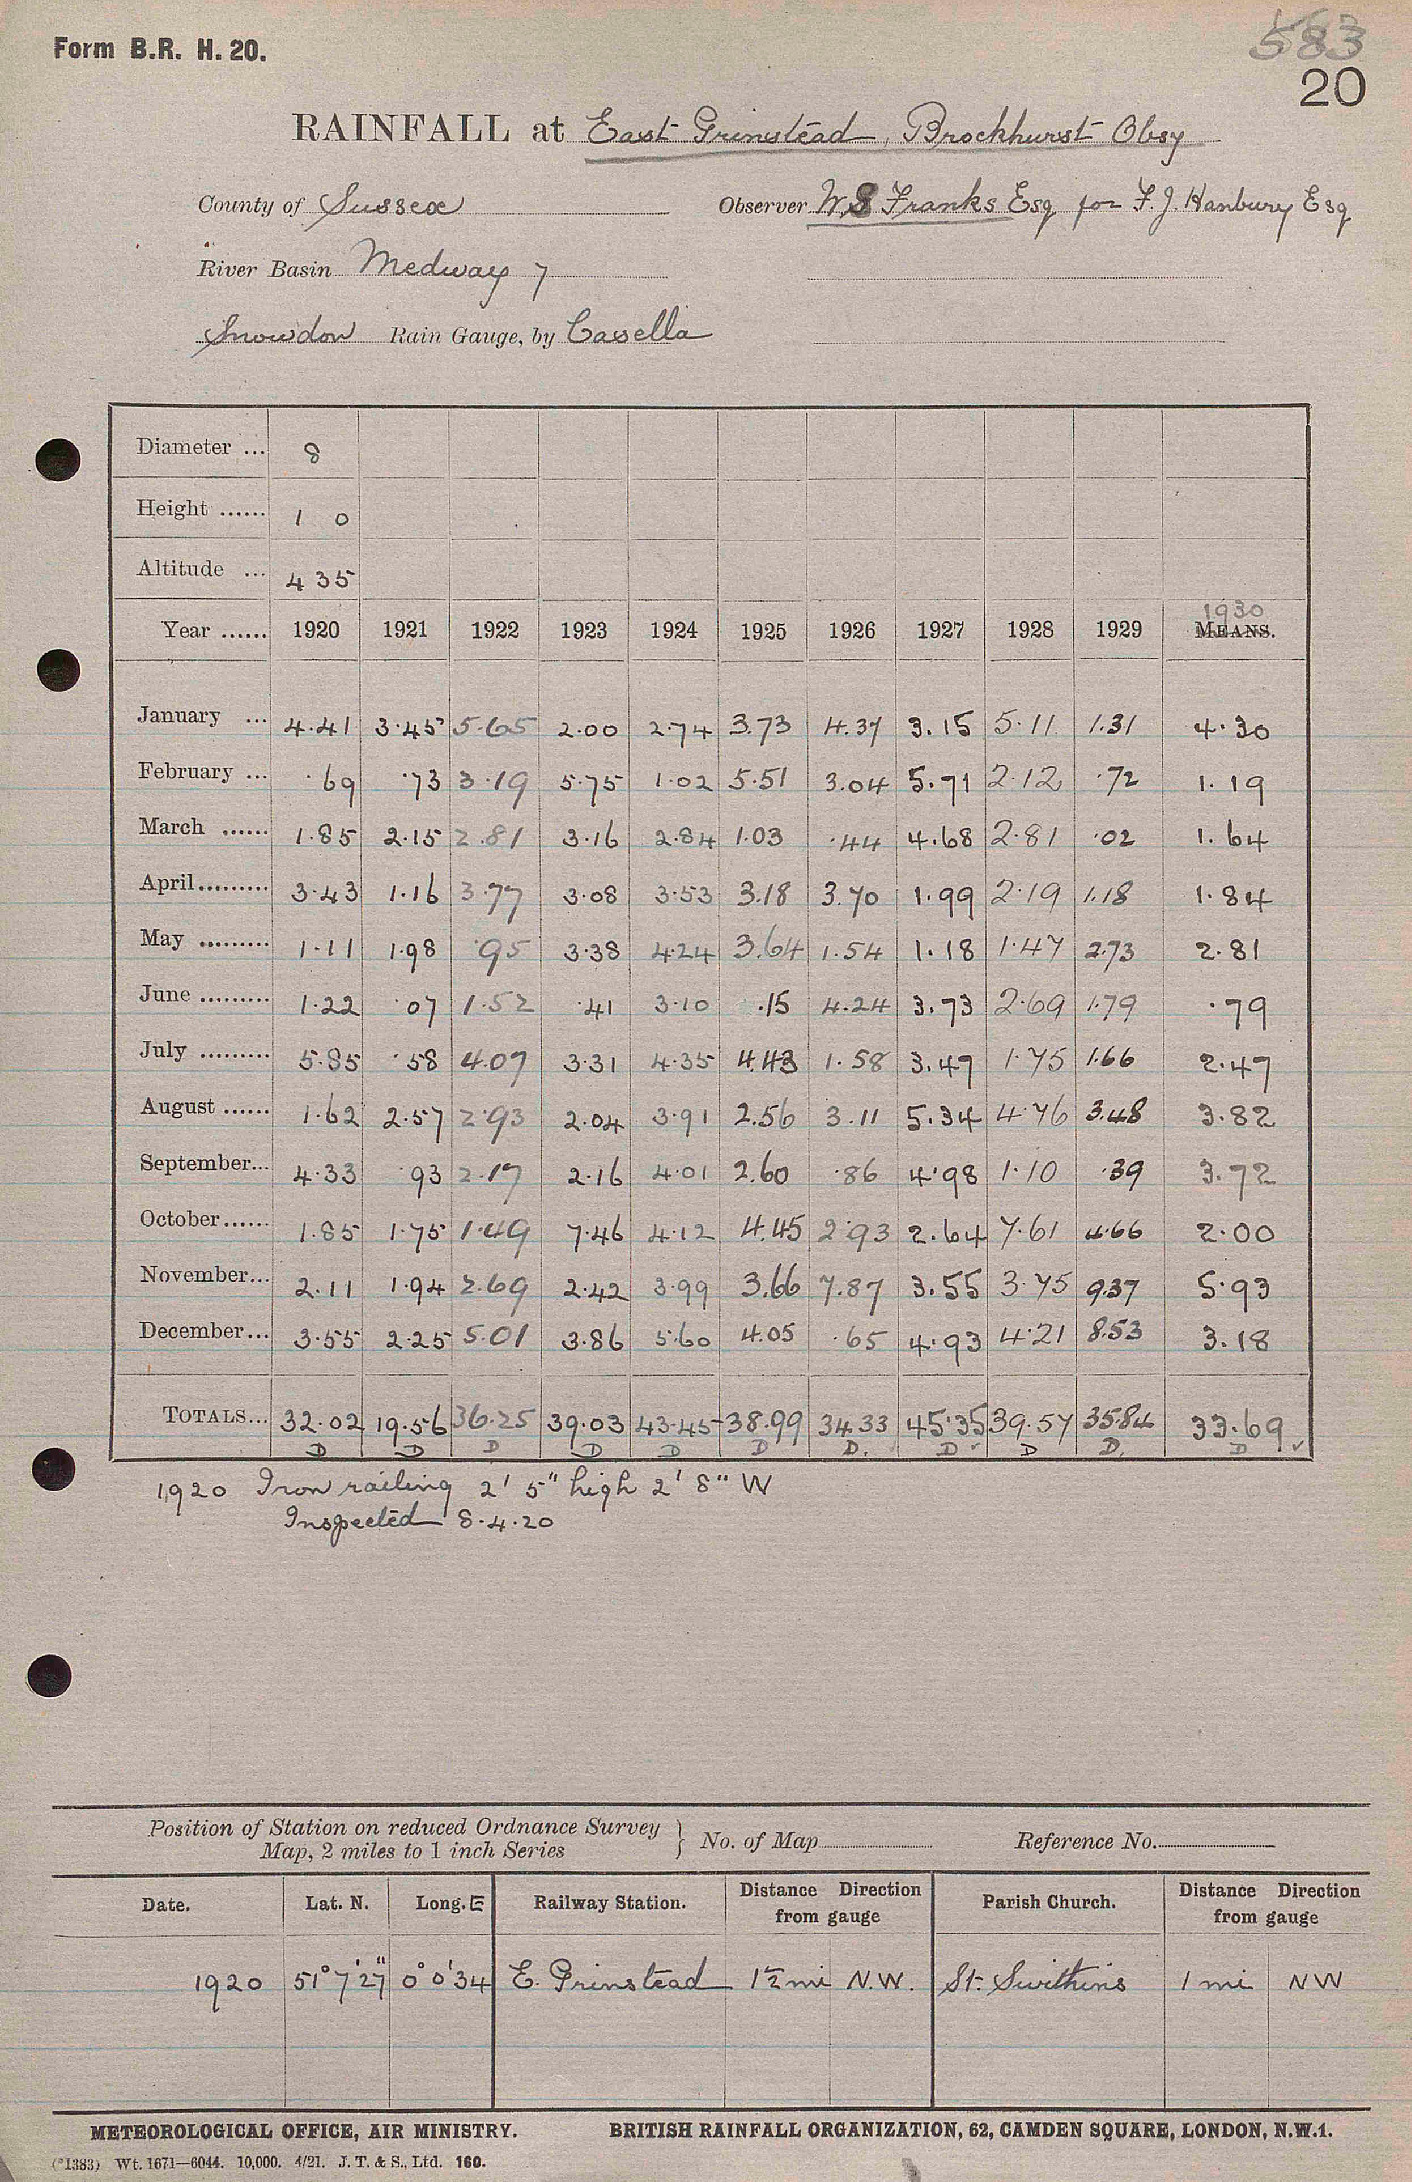 Form B.R. H. 20.
583
20
RAINFALL at East Grinstead, Brockhurst Obsy
County of Sussex Observer W.S Franks Esq for F.J. Hanbury Esq
River Basin Medway 7
Snowdon Rain Gauge, by Casella
Diameter ... 8
Height ...... 1 0
Altitude ... 435
1930
Year ...... 1920 1921 1922 1923 1924 1925 1926 1927 1928 1929 MEANS.
January ... 4.41 3.45 5.65 2.00 2.74 3.73 4.37 3.15 5.11 1.31 4.30
February ... .69 .73 3.19 5.75 1.02 5.51 3.04 5.71 2.12 .72 1.19
March ...... 1.85 2.15 2.81 3.16 2.84 1.03 .44 4.68 2.81 .02 1.64
April ......... 3.43 1.16 3.77 3.08 3.53 3.18 3.70 1.99 2.19 1.18 1.84
May ......... 1.11 1.98 .95 3.38 4.24 3.64 1.54 1.18 1.47 2.73 2.81
June ......... 1.22 .07 1.52 .41 3.10 .15 4.24 3.73 2.69 1.79 .79
July ......... 5.85 .58 4.07 3.31 4.35 4.43 1.58 3.47 1.75 1.66 2.47
August ...... 1.62 2.57 2.93 2.04 3.91 2.56 3.11 5.34 4.76 3.48 3.82
September... 4.33 .93 2.17 2.16 4.01 2.60 .86 4.98 1.10 .39 3.72
October...... 1.85 1.75 1.49 7.46 4.12 4.45 2.93 2.64 7.61 4.66 2.00
November... 2.11 1.94 2.69 2.42 3.99 3.66 7.87 3.55 3.75 9.37 5.93
December... 3.55 2.25 5.01 3.86 5.60 4.05 .65 4.93 4.21 8.53 3.18
TOTALS... 32.02 19.56 36.25 39.03 43.45 38.99 34.33 45.35 39.57 35.84 33.69
D D D D D D D. D ✓ D D. D ✓
1920 Iron railing 2' 5" high 2' 8" W
Inspected 8.4.20
Position of Station on reduced Ordnance Survey
Map, 2 miles to 1 inch Series } No. of Map Reference No.
Date. Lat. N. Long. E Railway Station. Distance Direction from gauge Parish Church. Distance Direction from gauge
1920 51° 7' 27" 0° 0' 34 E. Grinstead 1½ mi N.W. St. Swithins 1 mi NW
METEOROLOGICAL OFFICE, AIR MINISTRY. BRITISH RAINFALL ORGANIZATION, 62, CAMDEN SQUARE, LONDON, N.W.1.
(*1383) Wt. 1671—6044. 10,000. 4/21. J. T. & S., Ltd. 160.